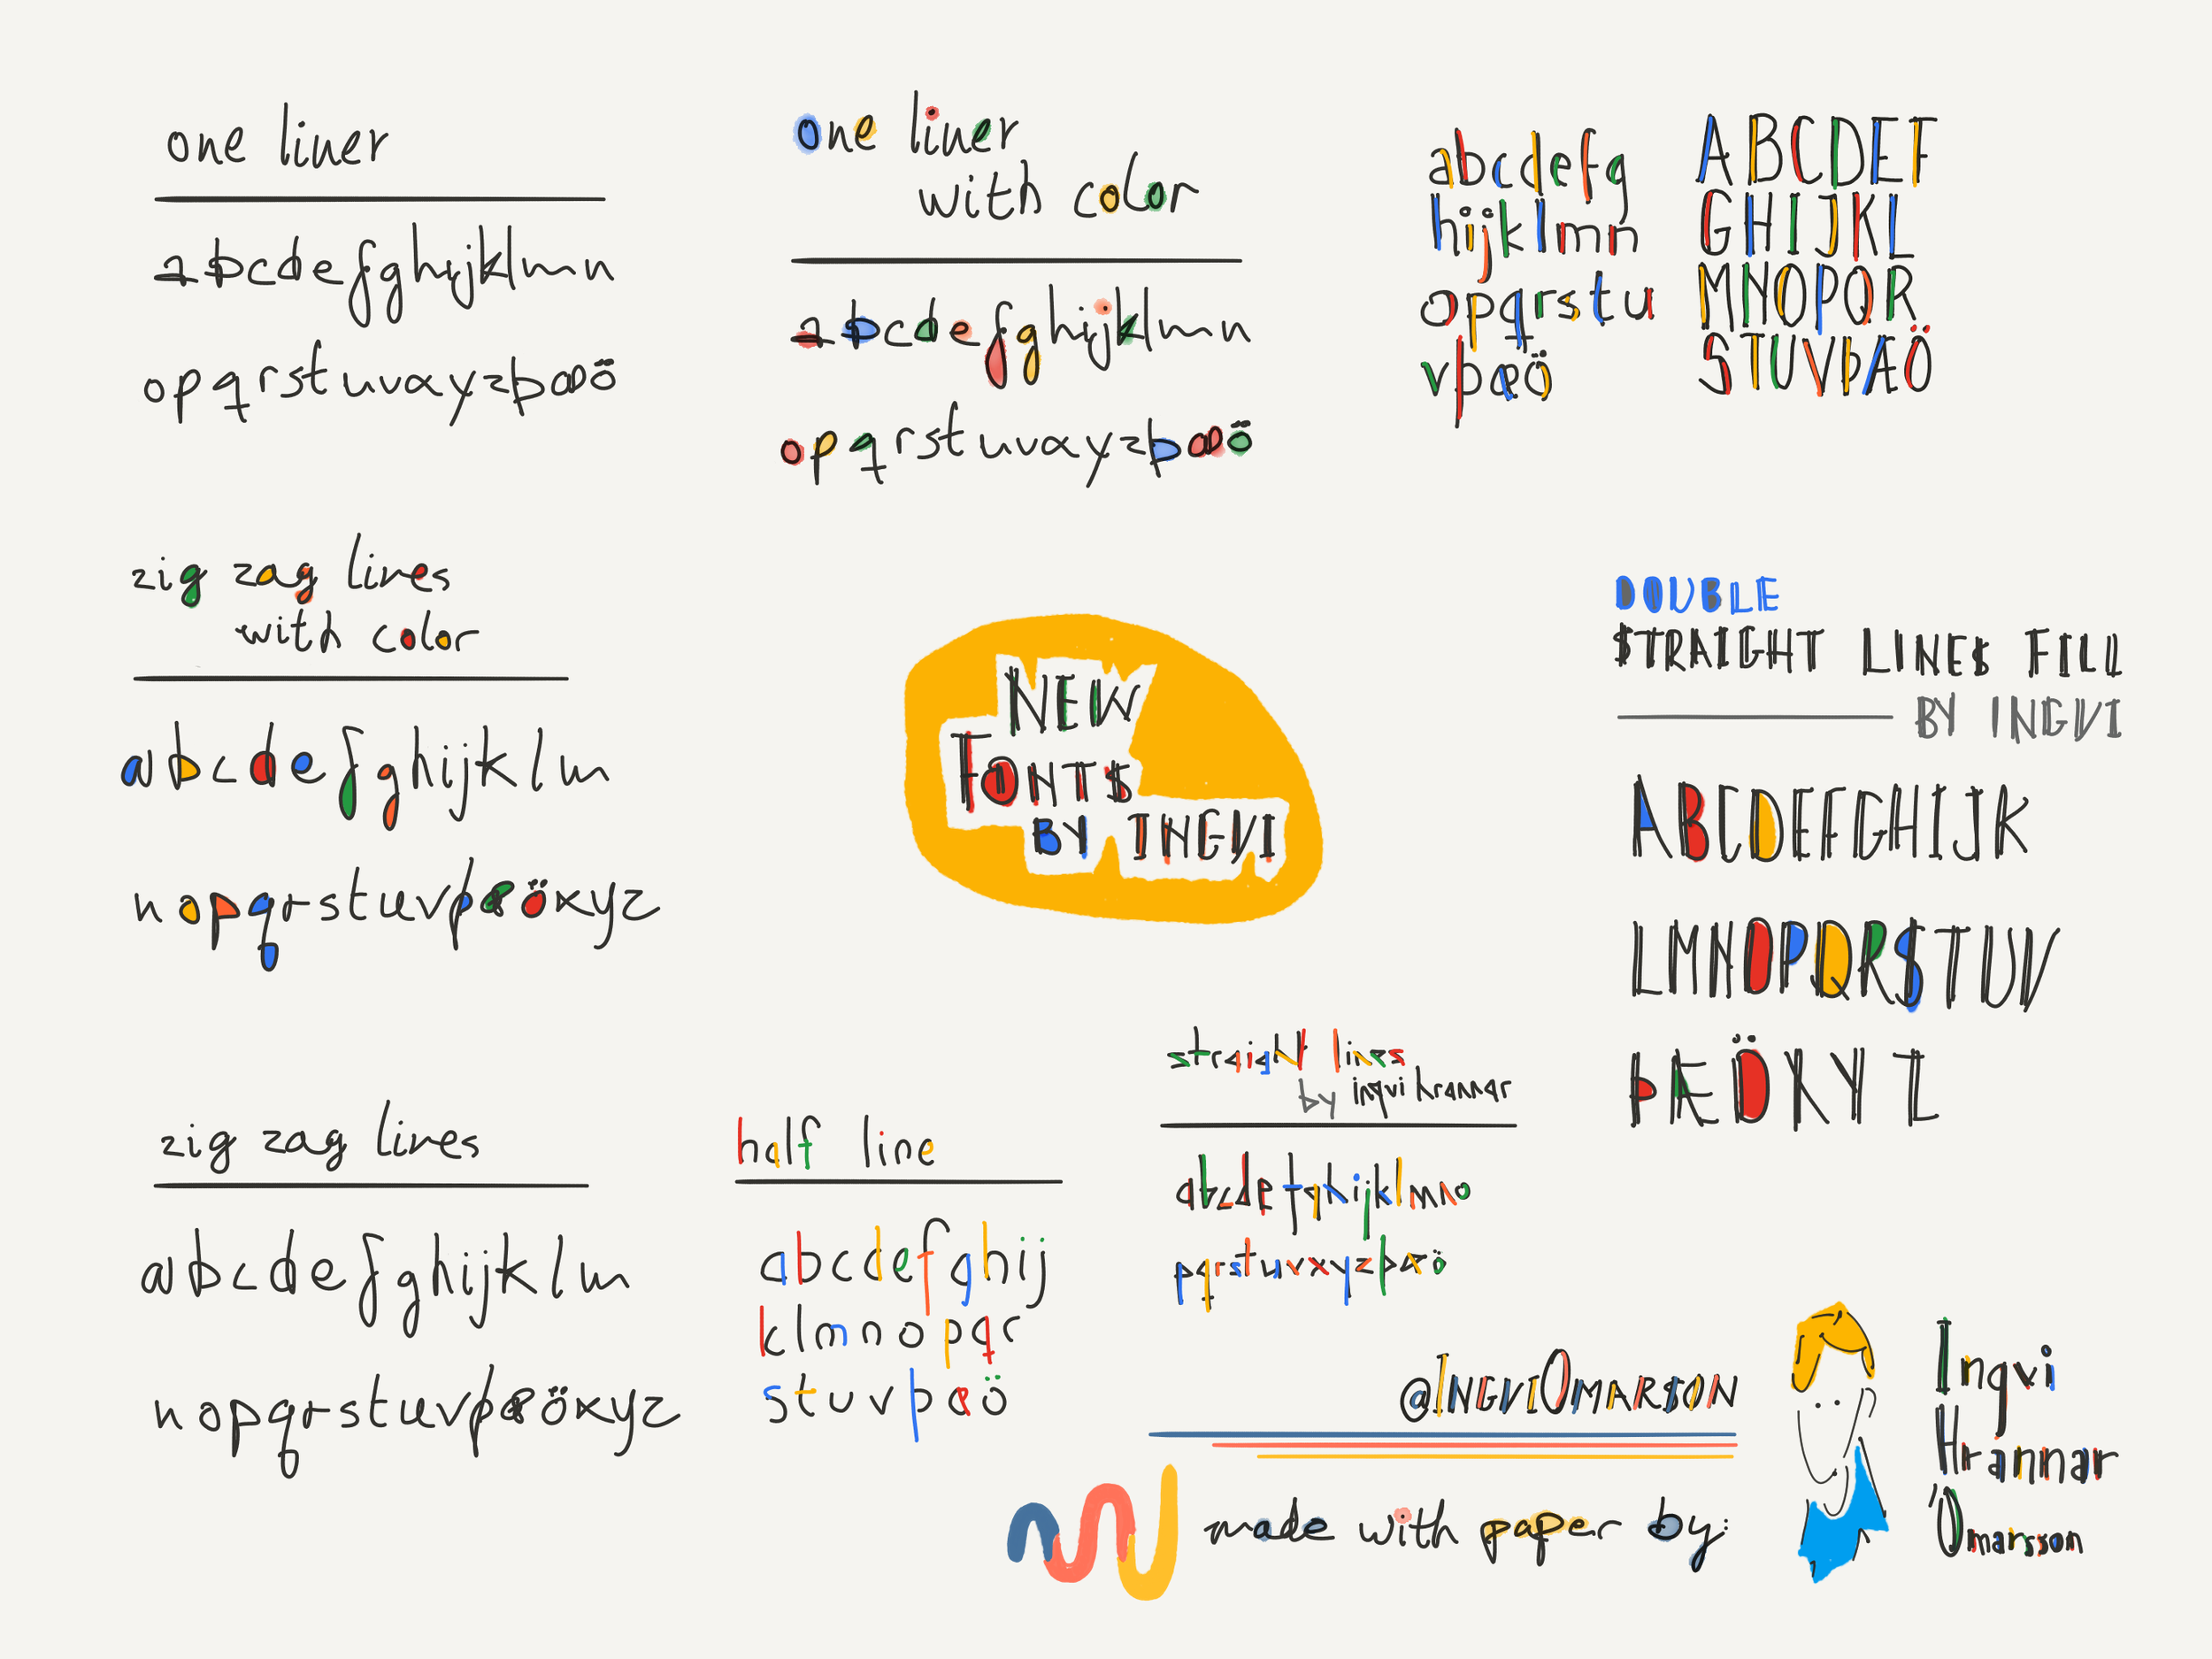 one liner
abcdefghijklmn
opqrstuvxyzþæö
one liner
with color
abcdefghijklmn
opqrstuvxyzþæö
abcdefg
hijklmn
opqrstu
vþæö
ABCDEF
GHIJKL
MNOPQR
STUVÞÆÖ
zig zag lines
with color
abcdefghijklm
nopqrstuvþæöxyz
NEW
FONTS
BY INGVI
DOUBLE
STRAIGHT LINES FILL
BY INGVI
ABCDEFGHIJK
LMNOPQRSTUV
ÞÆÖXYZ
zig zag lines
abcdefghijklm
nopqrstuvþæöxyz
half line
abcdefghij
klmnopqr
stuvþæö
straight lines
by ingvi hrannar
abcdefghijklmno
pqrstuvxyzþæö
@INGVIOMARSSON
made with paper by:
Ingvi
Hrannar
Ómarsson